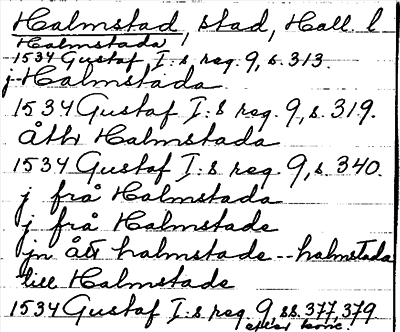 Halmstad, stad, Hall. l
Halmstada
1534 Gustaf I:s reg. 9, s. 313.
j Halmstada
1534 Gustaf I:s reg. 9, s. 319.
åth Halmstada
1534 Gustaf I:s reg. 9, s. 340.
j från Halmstada
j från Halmstade
jn ått halmstade -- halmstada
till Halmstade
1534 Gustaf I:s reg. 9, ss. 377, 379
efter konc.